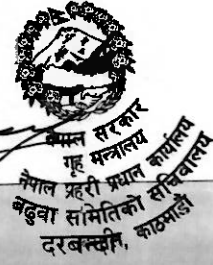 नेपाल सरकार
गृह मन्त्रालय
नेपाल प्रहरी प्रधान कार्यालय
बढुवा समितिको सचिवालय
काठमाडौं